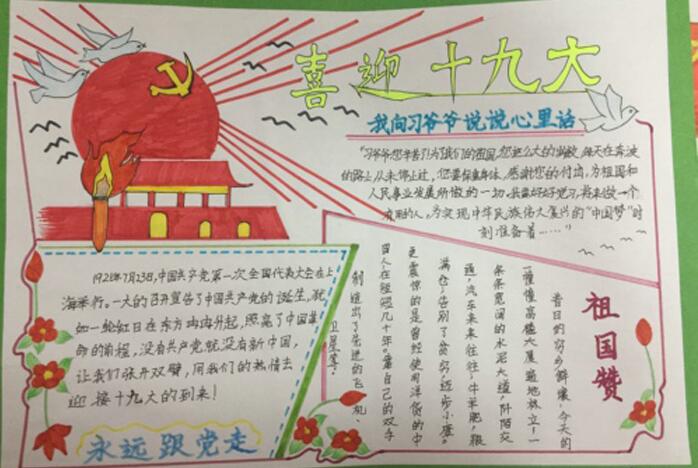 喜迎十九大
我向习爷爷说说心里话
"习爷爷您辛苦了!为我们的祖国,您这么大的岁数,每天在奔波
的路上从未停止过,您要保重身体,感谢您的付出,为祖国和
人民事业发展所做的一切,我要好好学习,将来做一个
有用的人,为实现中华民族伟大复兴的"中国梦"时
刻准备着……"
1921年7月23日,中国共产党第一次全国代表大会在上
海举行。一大的召开宣告了中国共产党的诞生,犹
如一轮红日在东方冉冉升起,照亮了中国革
命的前程,没有共产党就没有新中国,
让我们张开双臂,用我们的热情去
迎接十九大的到来!
永远跟党走
祖国赞
昔日的穷乡僻壤,今天的
一幢幢高楼大厦遍地林立!一
条条宽阔的水泥大道,阡陌交
通,汽车来来往往,牛羊肥,粮
满仓,告别了贫穷,迈步小康。
更震惊的是曾经使用洋货的中
国人在短短几十年。靠自己的双手
制造出了先进的飞机、
卫星等。